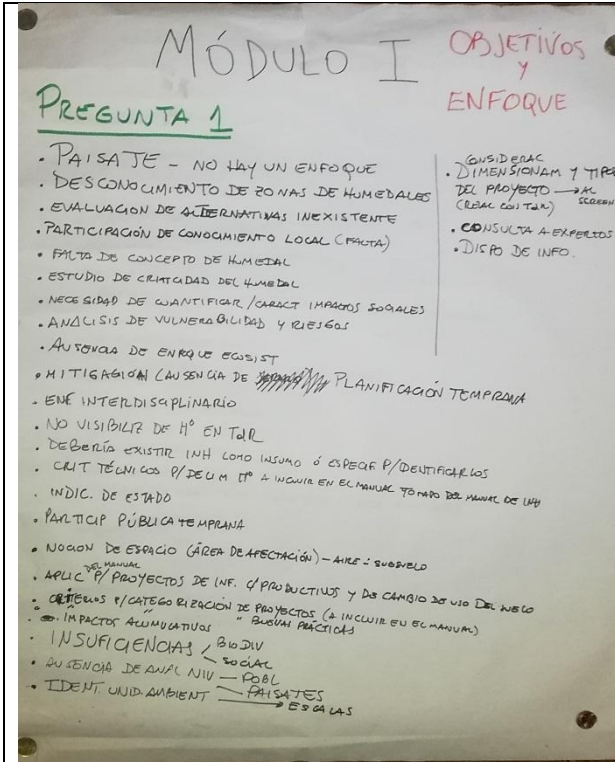 MÓDULO I
OBJETIVOS
Y
ENFOQUE
PREGUNTA 1
· PAISAJE - NO HAY UN ENFOQUE
· DESCONOCIMIENTO DE ZONAS DE HUMEDALES
· EVALUACION DE ALTERNATIVAS INEXISTENTE
· PARTICIPACIÓN DE CONOCIMIENTO LOCAL (FALTA)
· FALTA DE CONCEPTO DE HUMEDAL
· ESTUDIO DE CRITICIDAD DEL HUMEDAL
· NECESIDAD DE CUANTIFICAR / CARACT IMPACTOS SOCIALES
· ANÁLISIS DE VULNERABILIDAD Y RIESGOS
· AUSENCIA DE ENFOQUE ECOSIST
· MITIGACIÓN (AUSENCIA DE PLANIFICACIÓN TEMPRANA
· ENF INTERDISCIPLINARIO
· NO VISIBILIZ DE Hº EN TdR
· DEBERÍA EXISTIR INH COMO INSUMO ó ESPECIF P/IDENTIFICARLOS
· CRIT TÉCNICOS P/DELIM Hº A INCLUIR EN EL MANUAL TOMADO DEL MANUAL DE INH
· INDIC. DE ESTADO
· PARTICIP PÚBLICA TEMPRANA
· NOCION DE ESPACIO (ÁREA DE AFECTACIÓN) - AIRE - SUBSUELO
· APLIC DEL MANUAL P/ PROYECTOS DE INF. C/ PRODUCTIVOS Y DE CAMBIO DE USO DEL SUELO
· CRITERIOS P/CATEGORIZACIÓN DE PROYECTOS (A INCLUIR EN EL MANUAL)
· " IMPACTOS ACUMULATIVOS " BUENAS PRÁCTICAS
· INSUFICIENCIAS BIODIV
SOCIAL
· AUSENCIA DE ANAL NIV - POBL
PAISAJES
· IDENT. UNID. AMBIENT → ESCALAS
CONSIDERAC
· DIMENSIONAM Y TIPO
DEL PROYECTO → AL
(RELAC CON TdR) SCREEN
· CONSULTA A EXPERTOS
· DISPO DE INFO.